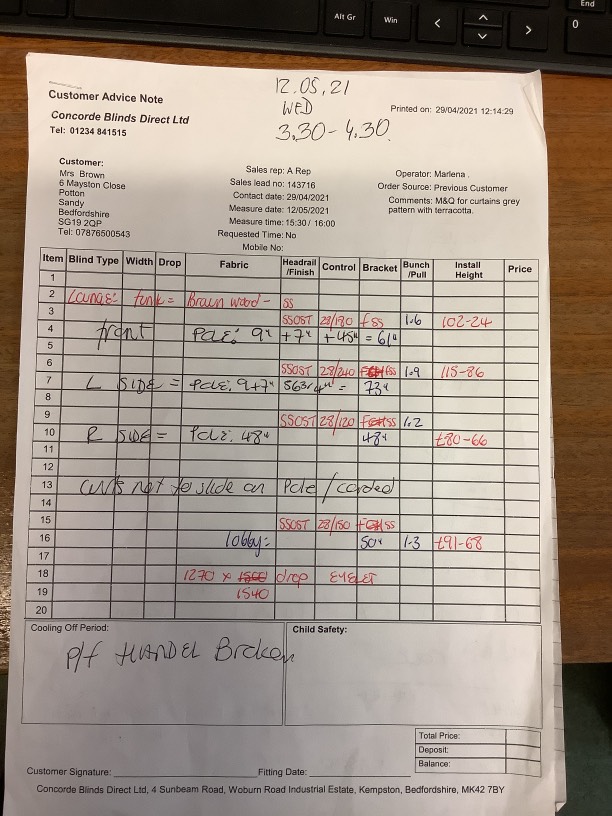 End
Alt Gr
Win
<
>
0
12.05.21
WED
3.30 - 4.30
Customer Advice Note
Printed on: 29/04/2021 12:14:29
Concorde Blinds Direct Ltd
Tel: 01234 841515
Customer:
Mrs Brown
6 Mayston Close
Potton
Sandy
Bedfordshire
SG19 2QP
Tel: 07876500543
Sales rep: A Rep
Sales lead no: 143716
Contact date: 29/04/2021
Measure date: 12/05/2021
Measure time: 15:30 / 16:00
Requested Time: No
Mobile No:
Operator: Marlena .
Order Source: Previous Customer
Comments: M&Q for curtains grey
pattern with terracotta.
Item Blind Type Width Drop Fabric Headrail /Finish Control Bracket Bunch /Pull Install Height Price
1
2 Lounge: = Braun wood - SS
3 SSOST 28/180 fSS 1.6 102-24
4 front Pole: 9" +7" +45" = 61"
5
6 SSOST 28/240 SS 1.9 115-86
7 L SIDE = Pole: 9+7" = 73"
8
9 SSOST 28/120 SS 1.2
10 R SIDE = Pole: 48" 48" £80-66
11
12
13 not to slide on Pole / corded
14
15 SSOST 28/150 SS
16 lobby: 50" 1-3 £91-68
17
18 1270 x 1500 drop EYELET
19 1540
20
Cooling Off Period:
Child Safety:
P/f HANDEL Broken
Total Price:
Deposit:
Balance:
Customer Signature:
Fitting Date:
Concorde Blinds Direct Ltd, 4 Sunbeam Road, Woburn Road Industrial Estate, Kempston, Bedfordshire, MK42 7BY